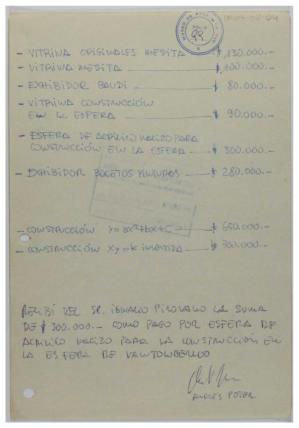 - VITRINA ORIGINALES MESITA $ 130.000.-
- VITRINA MESITA $ 100.000.-
- EXHIBIDOR GAUDI $ 80.000.-
- VITRINA CONSTRUCCIÓN
EN LA ESFERA $ 90.000.-
- ESFERA DE ACRILICO MACIZO PARA
CONSTRUCCIÓN EN LA ESFERA $ 300.000.-
- EXHIBIDOR BOCETOS $ 280.000.-
- CONSTRUCCIÓN $ 650.000.-
- CONSTRUCCIÓN $ 300.000.-
RECIBÍ DEL SR. LA SUMA
DE $ 300.000.- COMO PAGO POR ESFERA DE
ACRILICO MACIZO PARA LA CONSTRUCCIÓN EN
LA ESFERA DE VANTONGERLOO